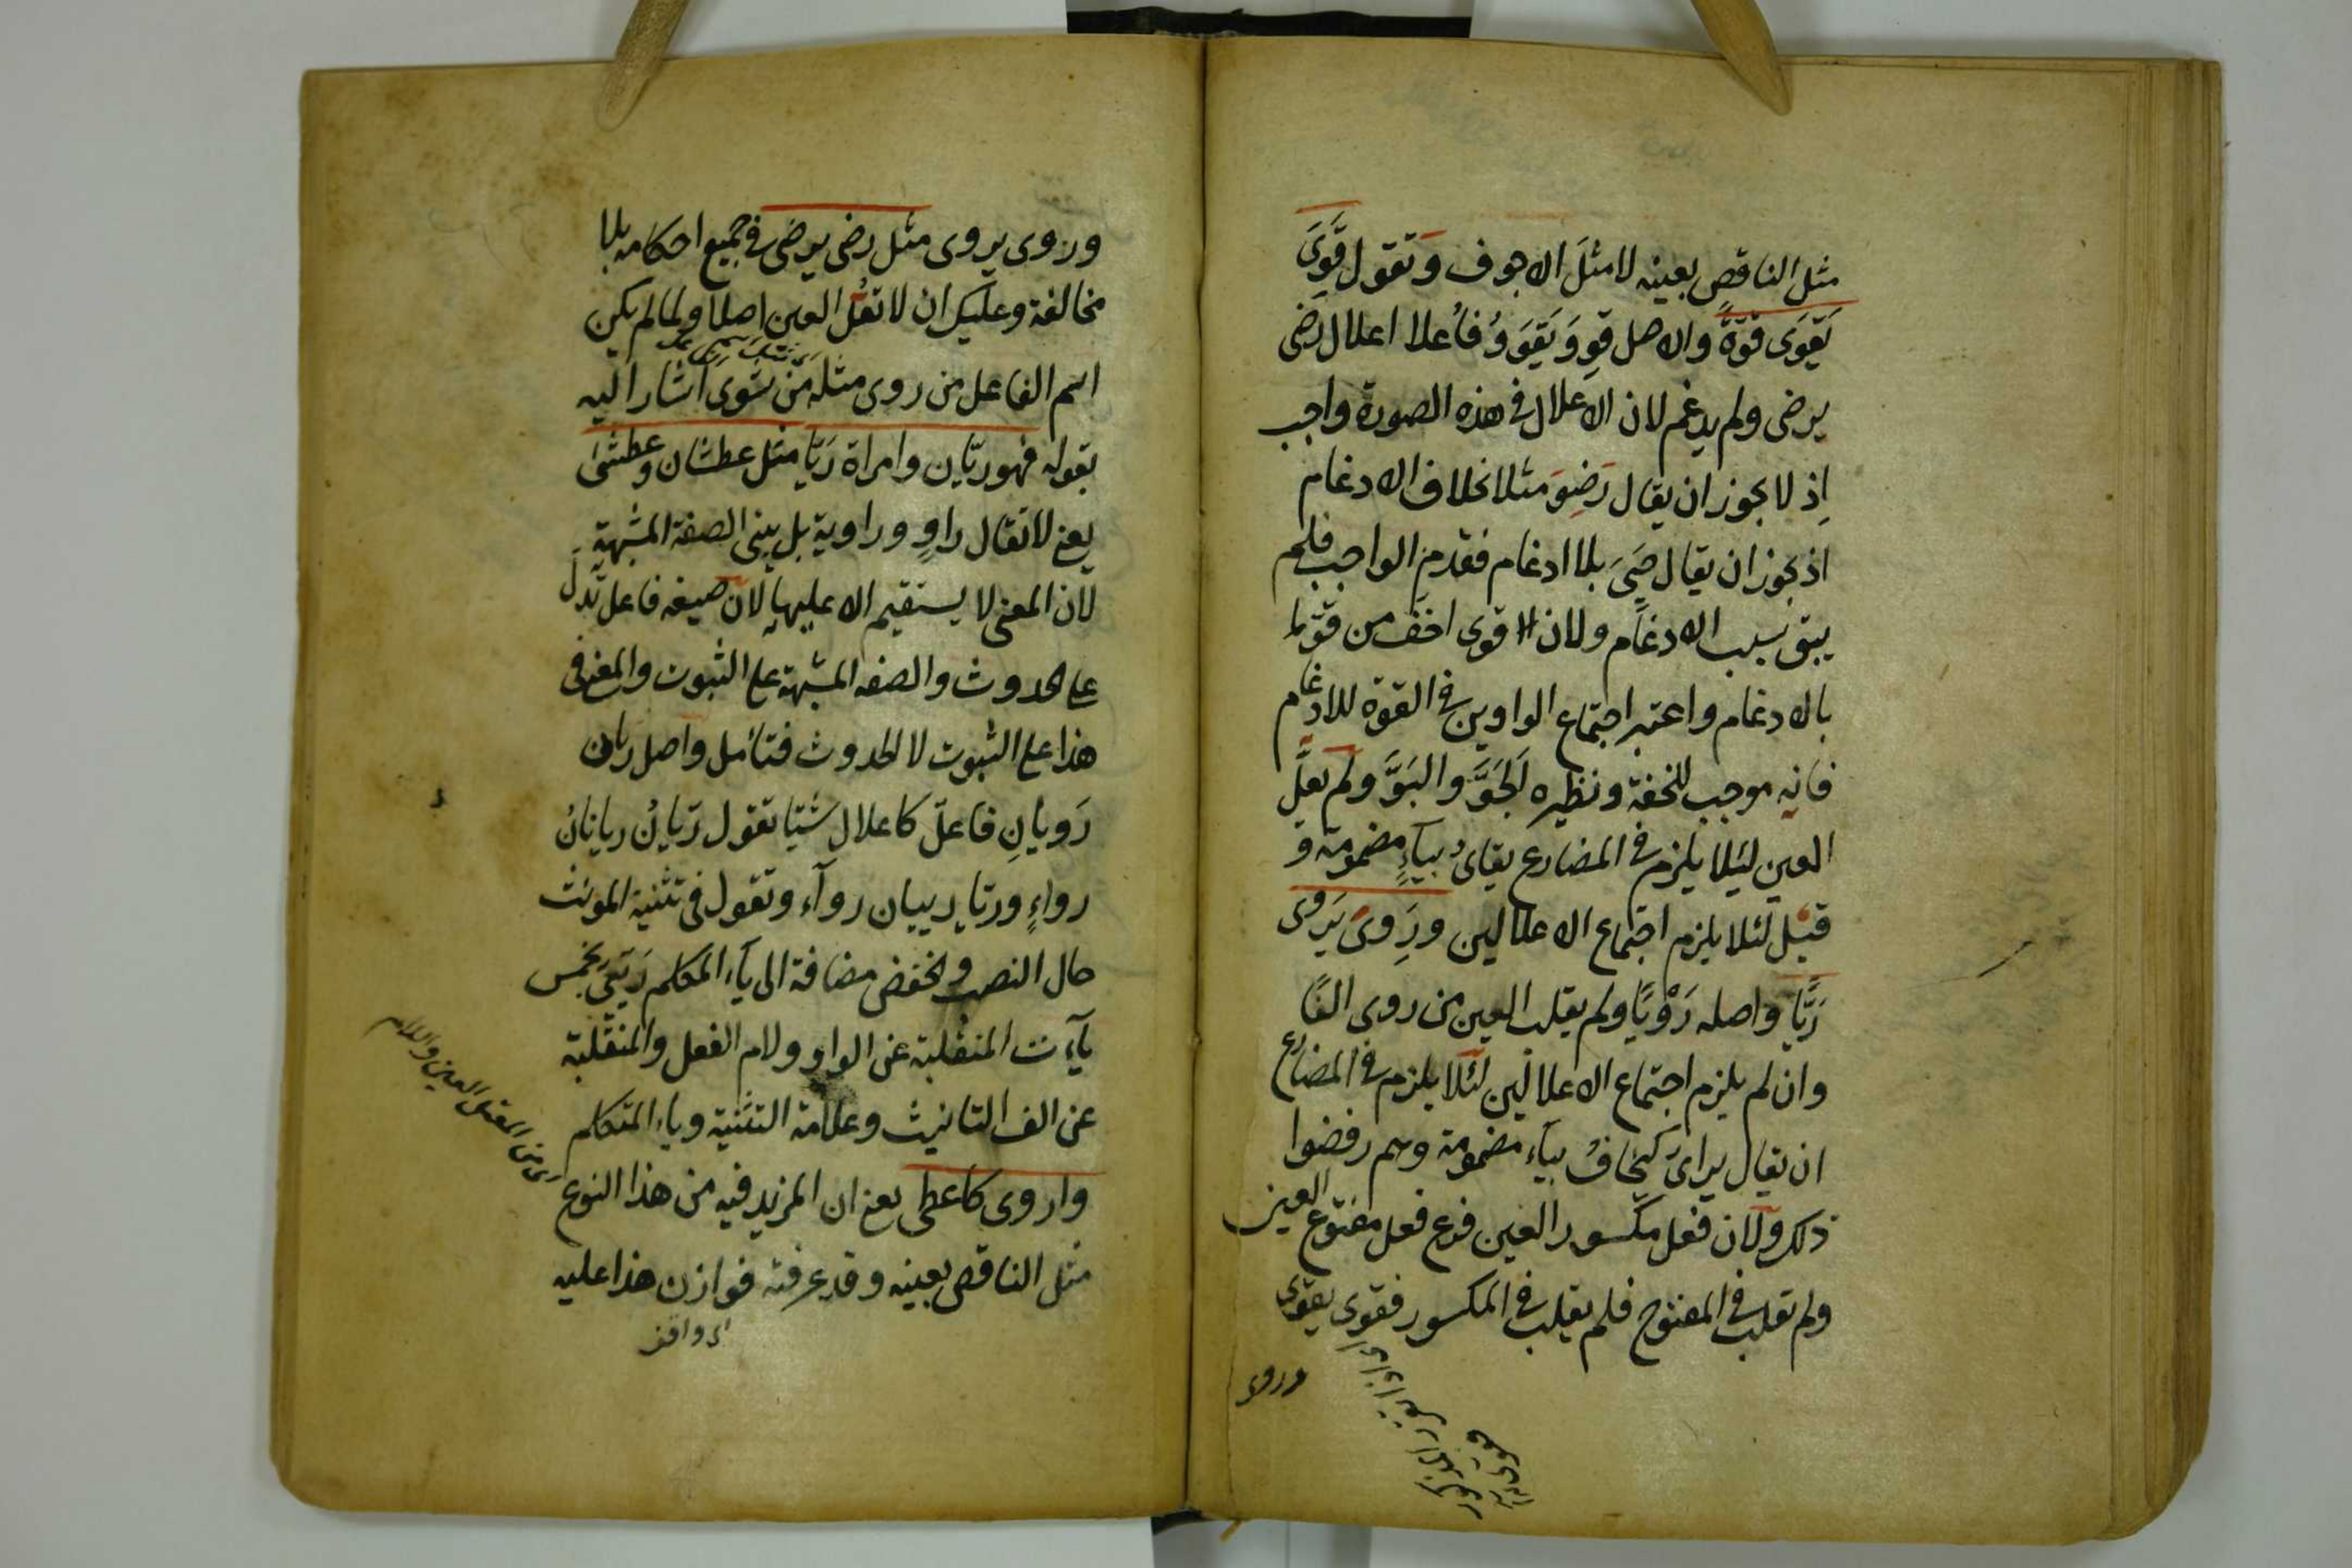 مثل الناقص بعينه لا مثلَ الاجوف وَتقول قَوِىَ
يَقوَى قُوّةً والاصل قوِوَ يَقوَوُ فأُعلا اعلال رضى
يرضى ولم يدغم لان الاعلال فى هذه الصورة واجب
اِذ لا يجوز ان يقال رَضِوَ مثلا بخلاف الادغام
اذ يجوز ان يقال حَيِىَ بلا ادغام فقدم الواجب فلم
يبق سبب الادغام ولان قوى اخف من قوّ
بالادغام واعتبر اجتماع الواوين فى القوة للادغام
فانه موجب للخفة ونظيره الجَوّ والبَوّ ولم يعلّ
العين لئلا يلزم فى المضارع يقاىُ بياءٍ مضمومة و
قيل لئلا يلزم اجتماع الاعلالين ورَوِىَ يَروى
رَيًّا واصله رَوْيًا ولم يقلب العين من روى الفًا
وان لم يلزم اجتماع الاعلالين لئلا يلزم فى المضارع
ان يقال يراىُ كيخافُ بياء مضمومة وهم رفضوا
ذلك ولان فعل مكسور العين فرع فعل مفتوح العين
ولم تقلب فى المفتوح فلم يقلب فى المكسور فقوى يقوى
وروى
وروى يروى مثل رضى يرضى فى جميع احكامه بلا
مخالفة وعليك ان لا تعُلّ العين اصلا ولما لم يكن
اسم الفاعل من روى مثله من شوى اشار اليه
بقوله فهو ريّان وامراة رَيّا مثل عطشان وعطشى
يعنى لا تقال راوٍ وراوية بل يبنى الصفة المشبهة
لان المعنى لا يستقيم الا عليها لان صيغه فاعل تدلّ
على الحدوث والصفه المشبهة على الثبوت والمعنى فى
هذا على الثبوت لا الحدوث فتأمل واصل ريان
رَويان فاعلّ كاعلال شيّا تقول ريّان ريانان
رواءٍ وريّا رييان رواء وتقول فى تثنية المونث
حال النصب والخفض مضافة الى ياء المتكلم رَيّيَىّ بخمس
ياءت المنقلبة عن الواو ولام الفعل والمنقلبة
عن الف التانيث وعلامة التثنية وياء المتكلم
واروى كاعطى يعنى ان المزيد فيه من هذا النوع
مثل الناقص بعينه وقد عرفته فوازن هذا عليه
اى من المعتل العين واللام